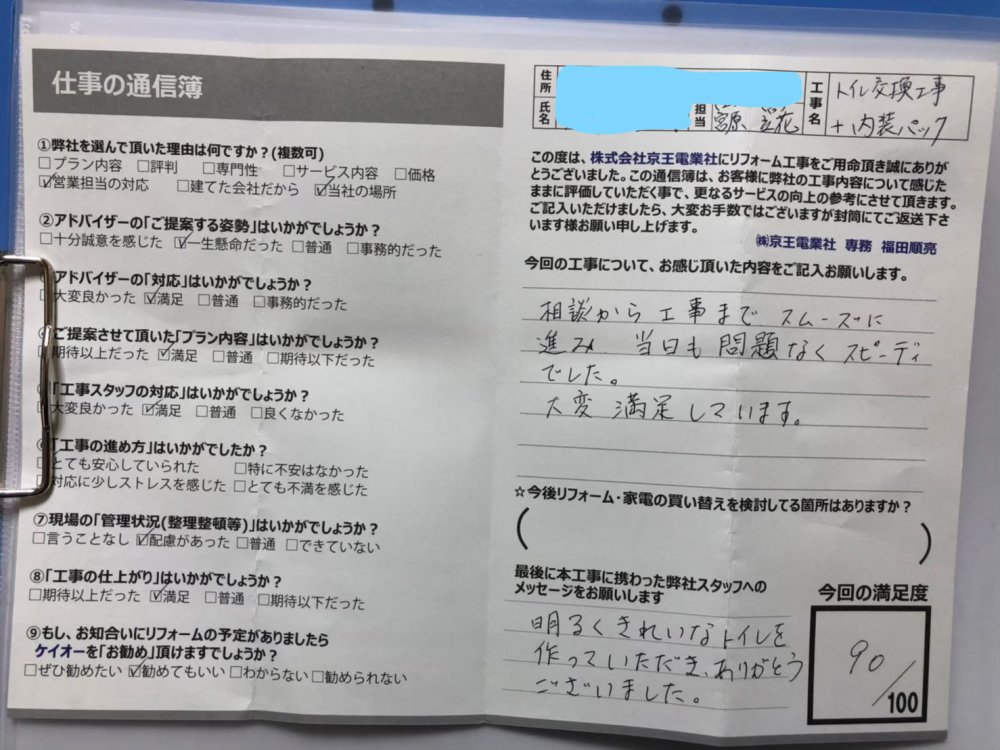 仕事の通信簿
①弊社を選んで頂いた理由は何ですか？(複数可)
□プラン内容 □評判 □専門性 □サービス内容 □価格
☑営業担当の対応 □建てた会社だから ☑当社の場所
②アドバイザーの「ご提案する姿勢」はいかがでしょうか？
□十分誠意を感じた ☑一生懸命だった □普通 □事務的だった
アドバイザーの「対応」はいかがでしょうか？
大変良かった ☑満足 □普通 □事務的だった
ご提案させて頂いた「プラン内容」はいかがでしょうか？
期待以上だった ☑満足 □普通 □期待以下だった
「工事スタッフの対応」はいかがでしょうか？
大変良かった ☑満足 □普通 □良くなかった
「工事の進め方」はいかがでしたか？
とても安心していられた □特に不安はなかった
対応に少しストレスを感じた □とても不満を感じた
⑦現場の「管理状況(整理整頓等)」はいかがでしょうか？
□言うことなし ☑配慮があった □普通 □できていない
⑧「工事の仕上がり」はいかがでしょうか？
□期待以上だった ☑満足 □普通 □期待以下だった
⑨もし、お知合いにリフォームの予定がありましたら
ケイオーを「お勧め」頂けますでしょうか？
□ぜひ勧めたい ☑勧めてもいい □わからない □勧められない
住所
氏名
担当
宮原 立花
工事名
トイレ交換工事
+内装パック
この度は、株式会社京王電業社にリフォーム工事をご用命頂き誠にありが
とうございました。この通信簿は、お客様に弊社の工事内容について感じた
ままに評価していただく事で、更なるサービスの向上の参考にさせて頂きます。
ご記入いただけましたら、大変お手数ではございますが封筒にてご返送下さ
います様お願い申し上げます。
㈱京王電業社 専務 福田順亮
今回の工事について、お感じ頂いた内容をご記入お願いします。
相談から工事まで スムーズに
進み 当日も問題なくスピーディ
でした。
大変満足しています。
☆今後リフォーム・家電の買い替えを検討してる箇所はありますか？
( )
最後に本工事に携わった弊社スタッフへの
メッセージをお願いします
明るくきれいなトイレを
作っていただき、ありがとう
ございました。
今回の満足度
90/100